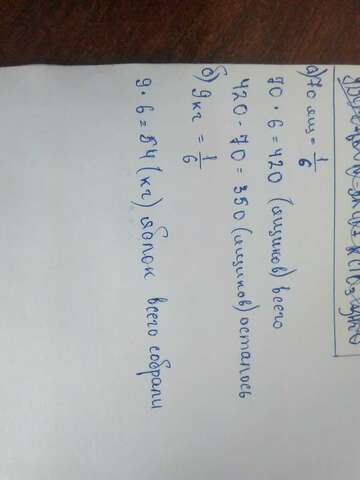 а) 70 ящ = 1/6
70 · 6 = 420 (ящиков) всего
420 - 70 = 350 (ящиков) осталось
б) 9 кг = 1/6
9 · 6 = 54 (кг) яблок всего собрали